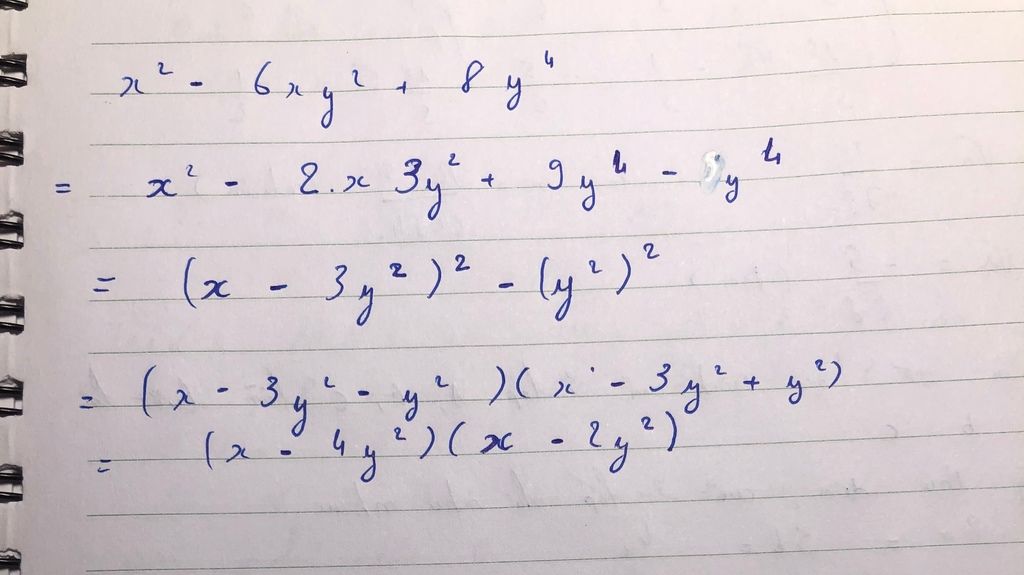 x² - 6xy² + 8y⁴
= x² - 2.x 3y² + 9y⁴ - y⁴
= (x - 3y²)² - (y²)²
= (x - 3y² - y²)(x - 3y² + y²)
= (x - 4y²)(x - 2y²)